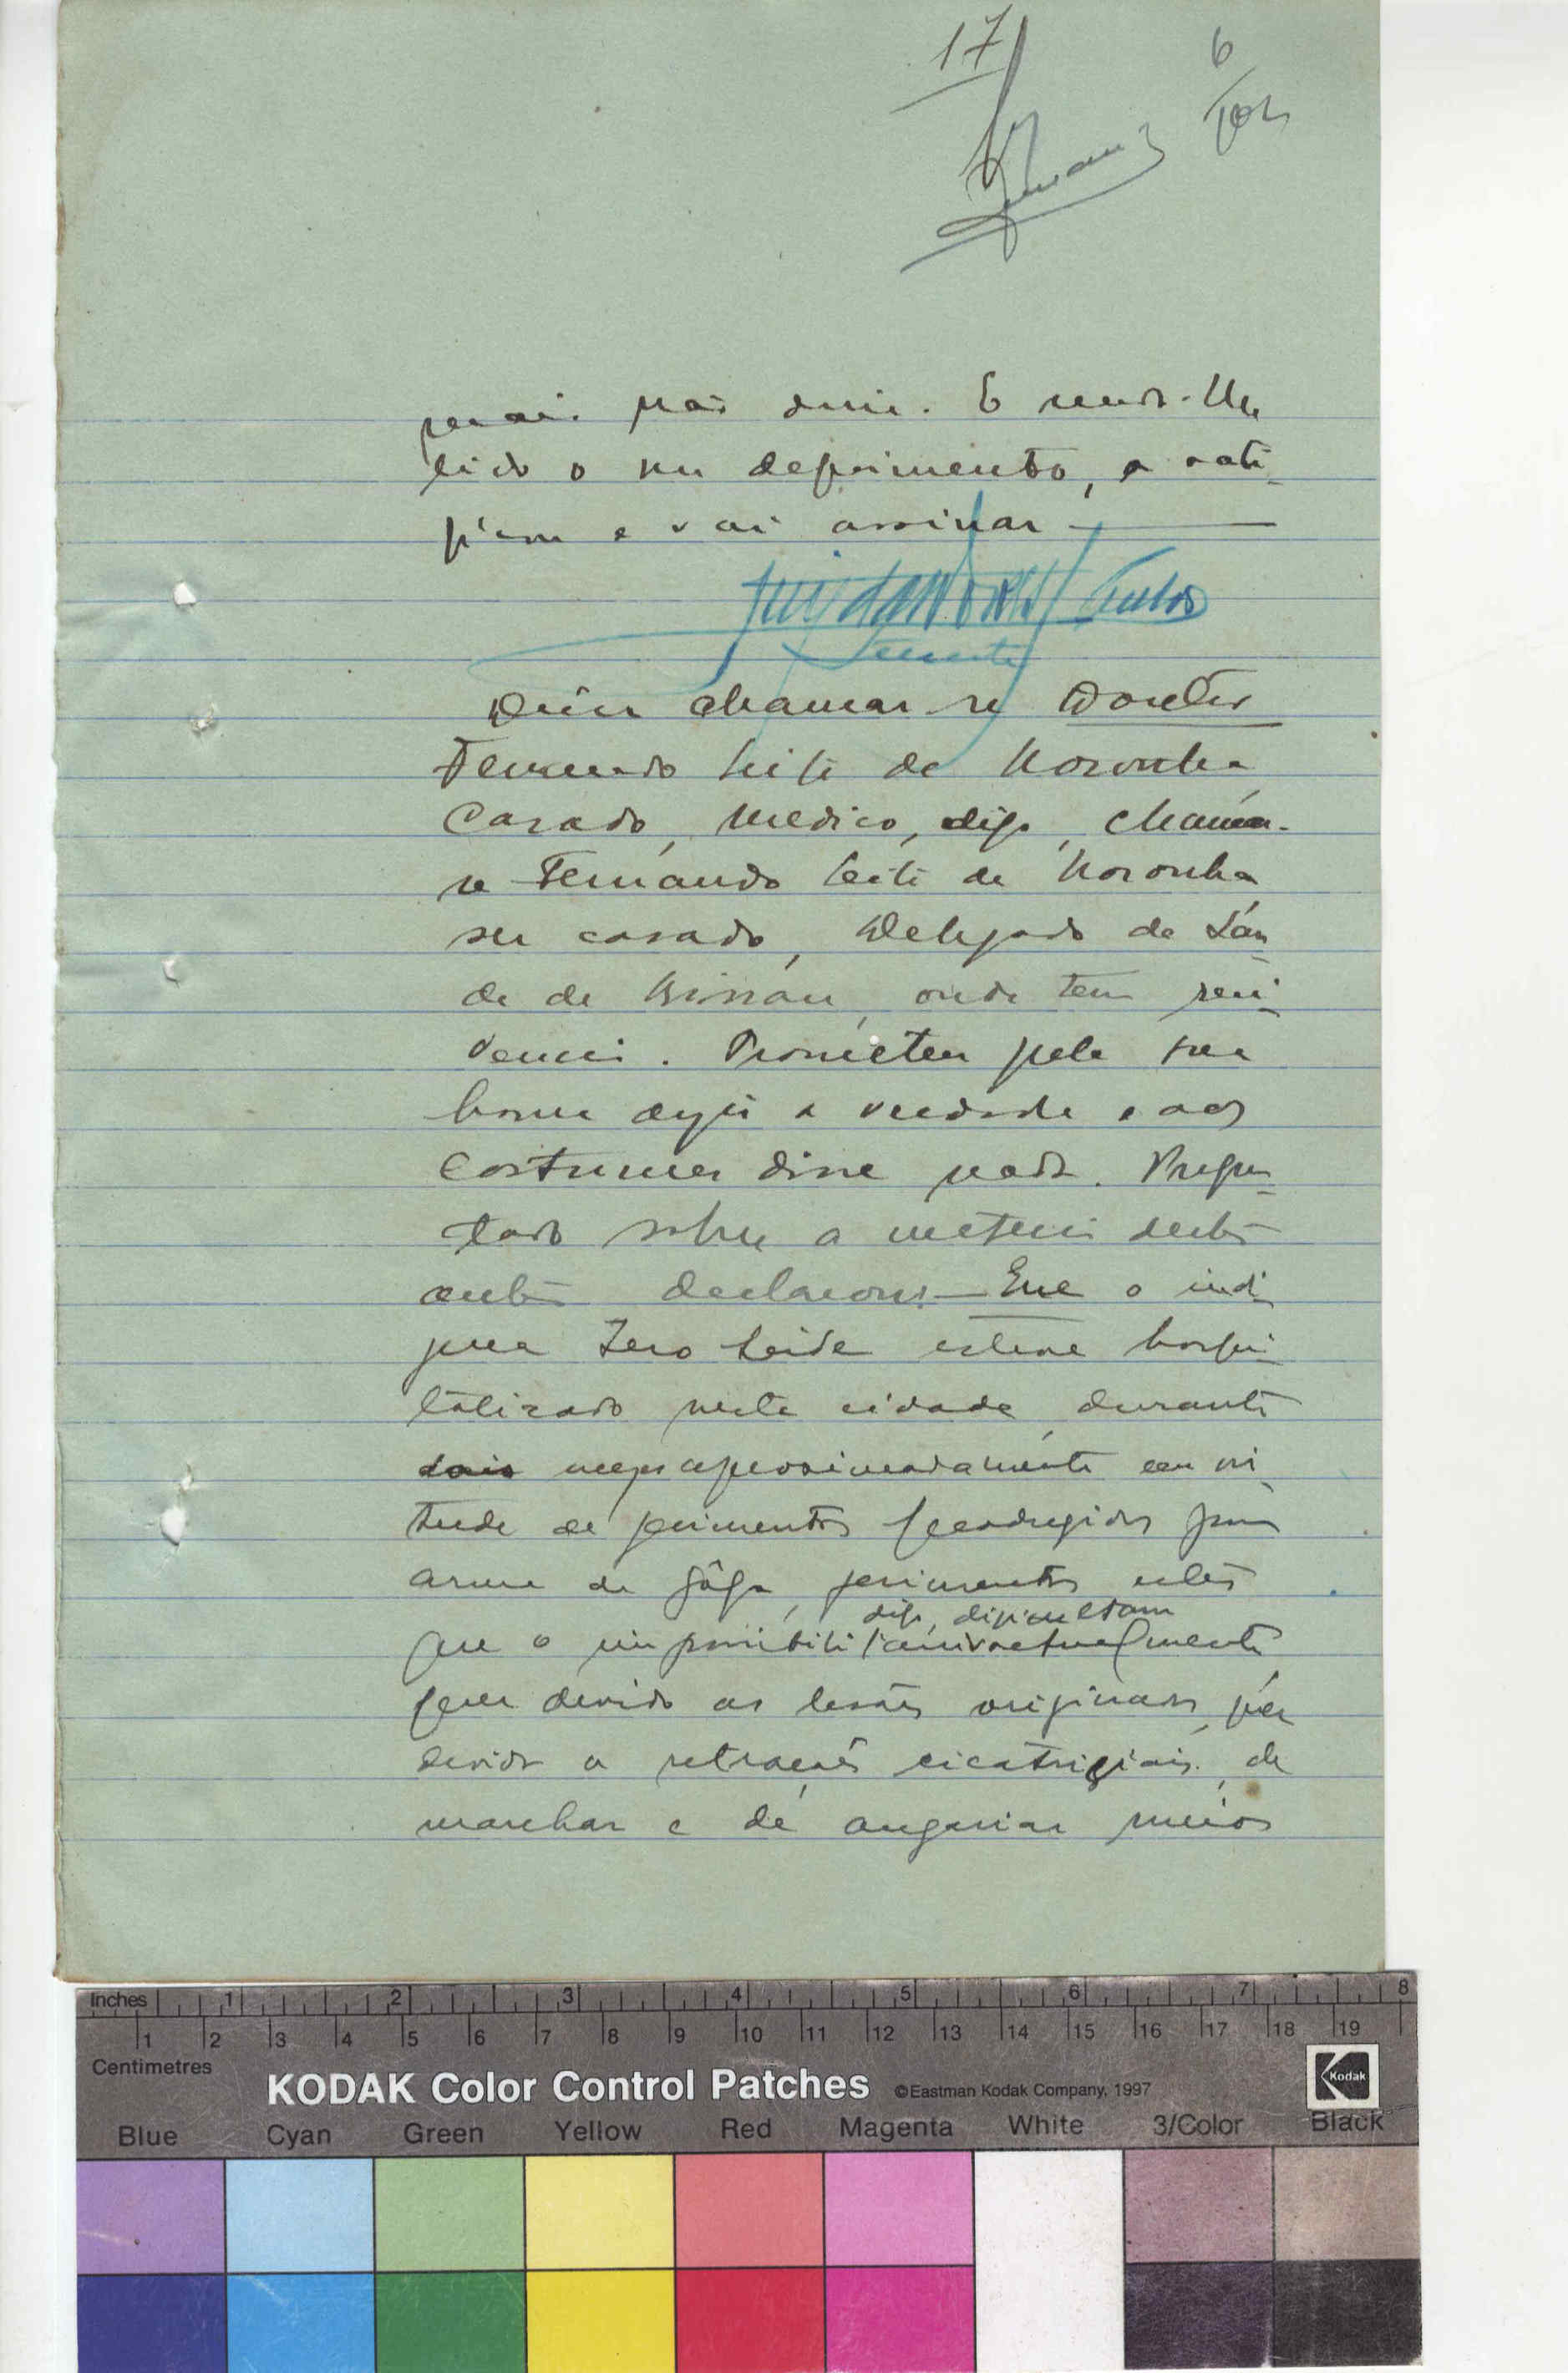 17
6
mais não disse. E sendo-lhe
lido o seu depoimento, o rati-
ficou e vai assinar
Tenente
Disse chamar-se Doutor
Fernando Leite de Noronha
casado, medico, digo, chamar-
se Fernando Leite de Noronha
ser casado, Delegado de Saú-
de de Bissau, onde tem resi-
dencia. Prometeu pela sua
honra dizer a verdade e aos
costumes disse nada. Pregun-
tado sobre a materia destes
autos declarou: Que o indi-
gena Zero Seide esteve hospi-
talizado nesta cidade, durante
dois mezes aproximadamente em vir-
tude de ferimentos produzidos por
arma de fôgo, ferimentos estes
digo, dificultam
que o impossibilitam actualmente
devido as lesões originadas, por
devido a retrações cicatriciais, de
marchar e de angariar meios
Inches 1 2 3 4 5 6 7 8
1 2 3 4 5 6 7 8 9 10 11 12 13 14 15 16 17 18 19
Centimetres
KODAK Color Control Patches ©Eastman Kodak Company, 1997
Kodak
Blue Cyan Green Yellow Red Magenta White 3/Color Black